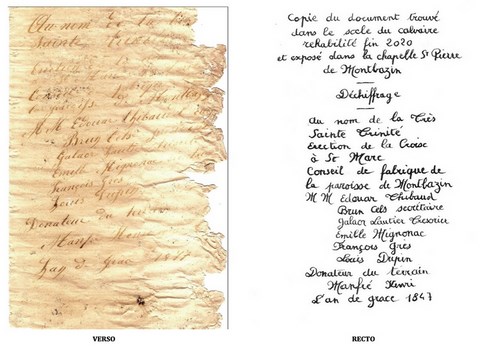 Au nom de la
Sainte
Edouar Thibaud
Galaor
Emile
François Grès
Louis
Donateur du
de Grace
VERSO
Copie du document trouvé
dans le socle du calvaire
rehabilité fin 2020
et exposé dans la chapelle St Pierre
de Montbazin
Déchiffrage
au nom de la Très
Sainte Trinité
Erection de la Croise
à St Marc
Conseil de fabrique de
la paroisse de Montbazin
M M Edouar Thibaud
Brun Cels secrétaire
Galaor Lautier Tresorier
Emille Mignonac
François Grès
Louis Dupin
Donateur du terrain
Manfré Henri
L'an de grace 1847
RECTO